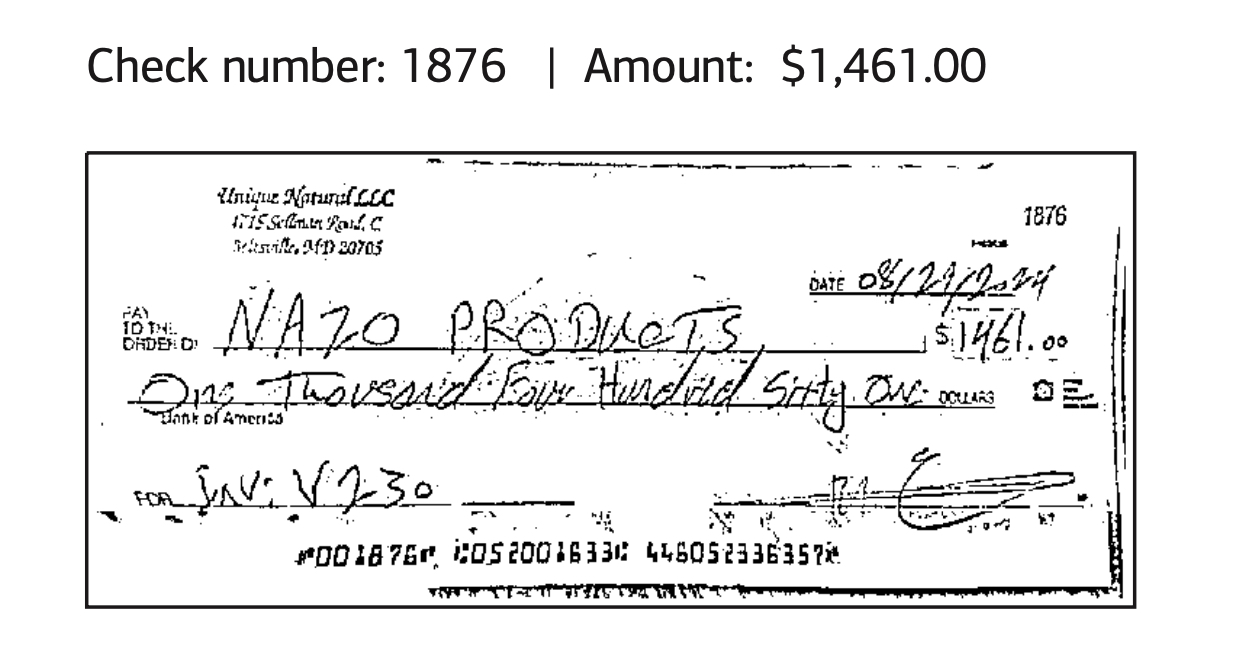 Check number: 1876 | Amount: $1,461.00
Unique Natural LLC
4715 Sellman Road, C
Beltsville, MD 20705
1876
DATE 08/29/2024
PAY TO THE ORDER OF NAZO PRODUCTS $1461.00
One Thousand Four Hundred Sixty One DOLLARS
Bank of America
FOR INV: V230
⑈001876⑈ ⑆052001633⑆ 446052336357⑈